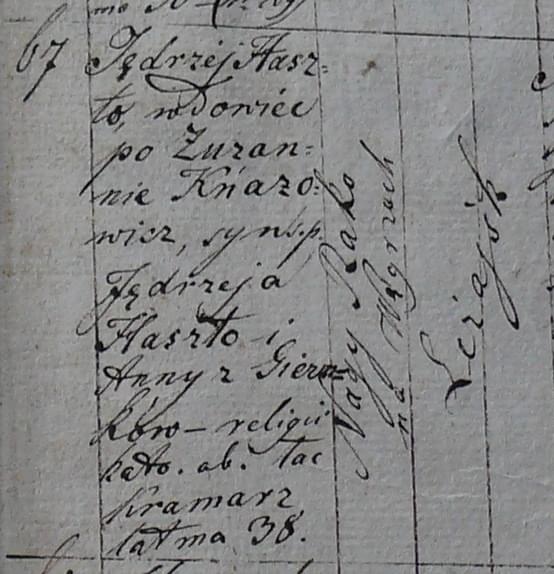 67
Jędrzej Hasz=
to, wdowiec
po Zuzan=
nie Knazo=
wicz, syn ś.p.
Jędrzeja
Haszto i
Anny z Giern=
ków – religii
kato. ob. łac
kramarz
lat ma 38.
Nagy Rako
na Węgrzech
Leżajsk